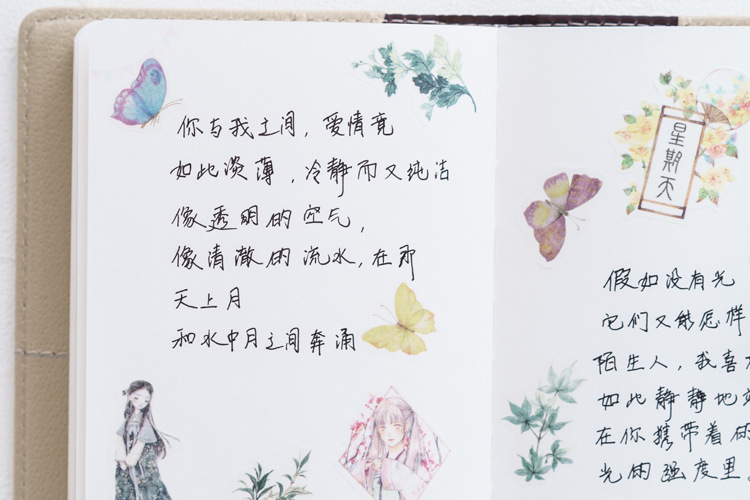 你与我之间，爱情竟
如此淡薄，冷静而又纯洁
像透明的空气，
像清澈的流水，在那
天上月
和水中月之间奔涌
星期天
假如没有光
它们又能怎样
陌生人，我喜
如此静静地
在你携带着
光的强度里